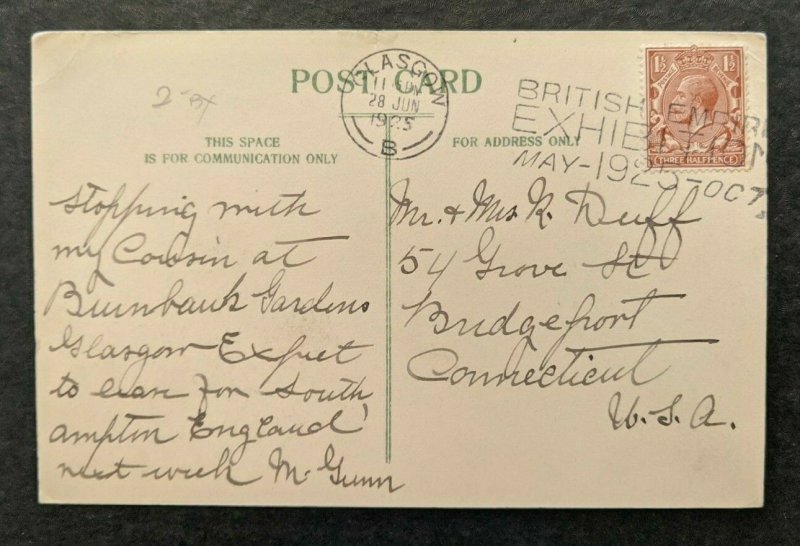 POST CARD
GLASGOW
11 PM
28 JUN
1925
B
BRITISH EMPIRE
EXHIBITION
MAY-1925-OCT
1½ 1½
THREE HALFPENCE
2-
THIS SPACE
IS FOR COMMUNICATION ONLY
FOR ADDRESS ONLY
Stopping with
my Cousin at
Burnbank Gardens
Glasgow Expect
to leave for South
ampton England
next week M. Gunn
Mr. & Mrs R. Duff
54 Grove St
Bridgeport
Connecticut
U.S.A.